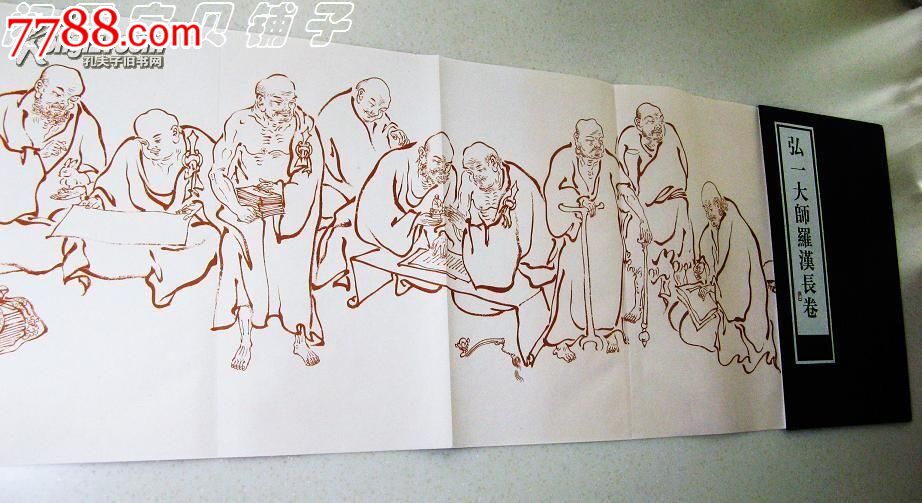 7788.com
孔夫子旧书网
贝铺子
弘一大師羅漢長卷